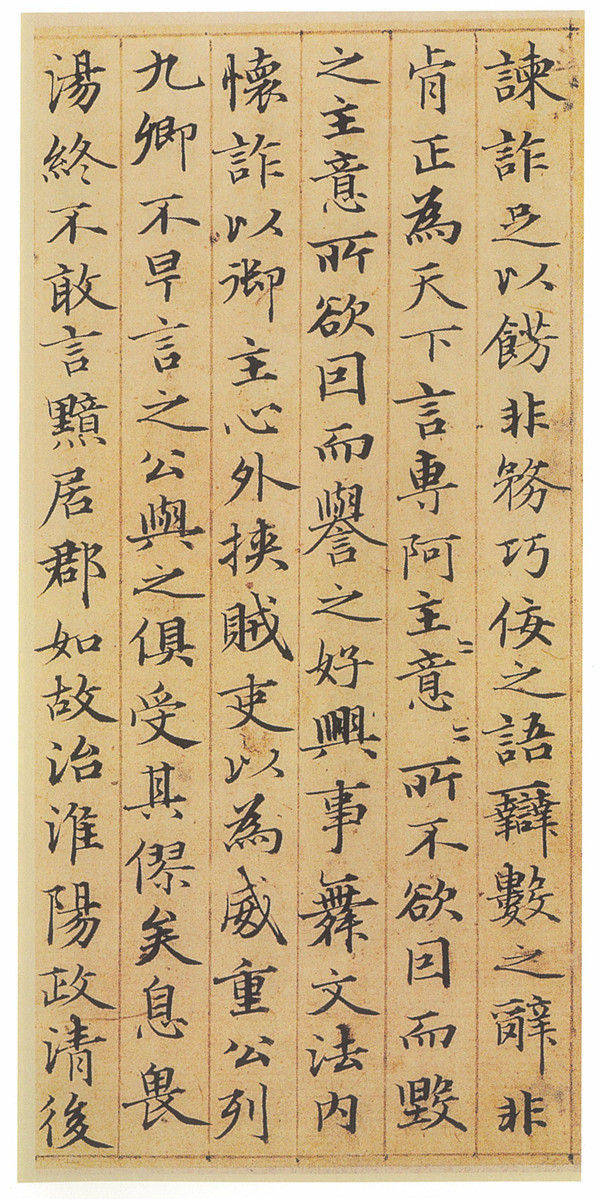 諫詐足以餝非務巧佞之語辯數之辭非
肯正為天下言專阿主〻意〻所不欲因而毀
之主意所欲因而譽之好興事舞文法内
懷詐以御主心外挾賊吏以為威重公列
九卿不早言之公與之俱受其僇矣息畏
湯終不敢言黯居郡如故治淮陽政清後